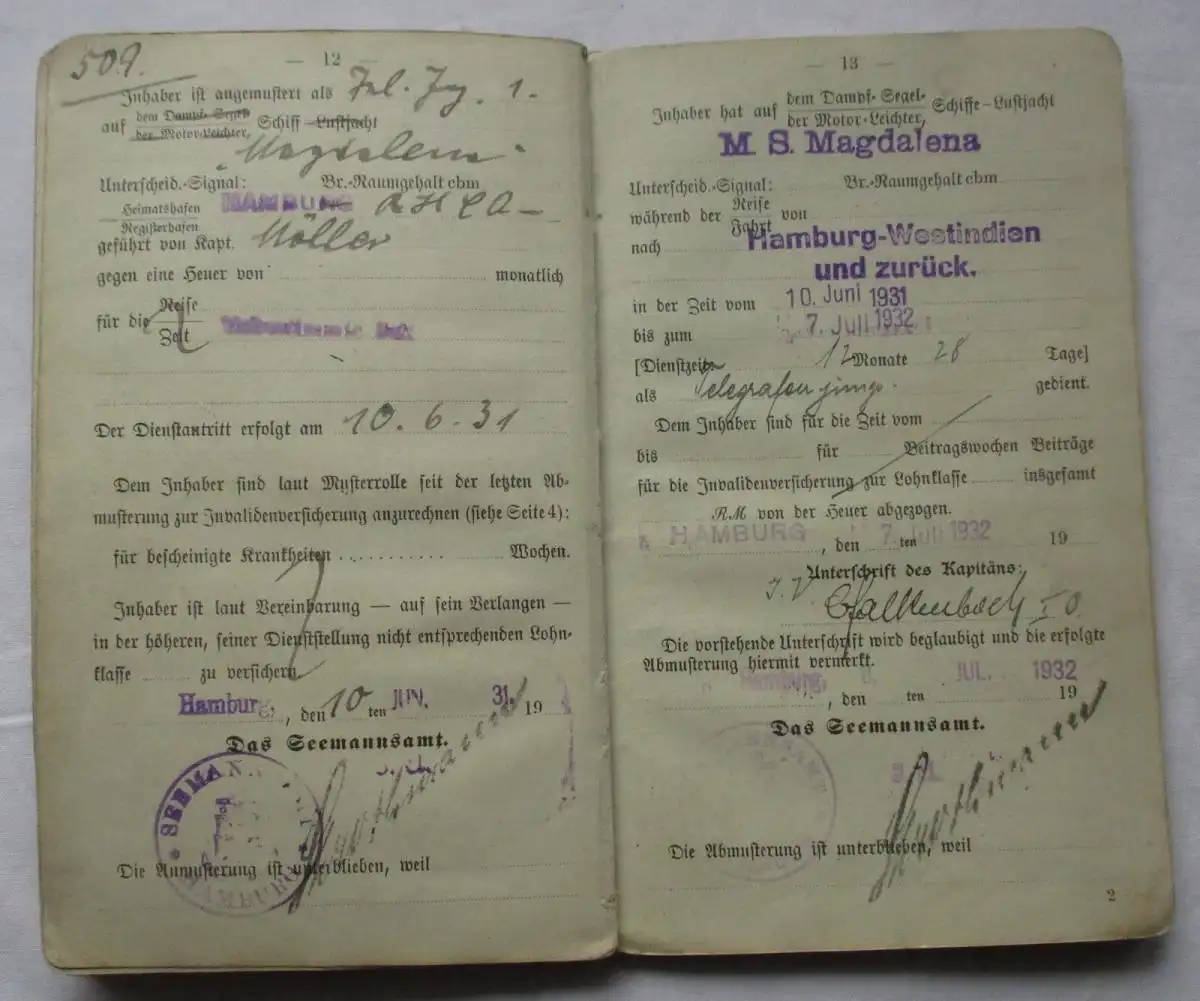 509.
— 12 —
Inhaber ist angemustert als
auf dem Dampf- Segel-
der Motor-Leichter, Schiff – Lustjacht
„Magdalena“
Unterscheid.-Signal: Br.-Raumgehalt cbm
Heimatshafen HAMBURG
Registerhafen
geführt von Kapt. Möller
gegen eine Heuer von monatlich
für die Reise
Zeit
Der Dienstantritt erfolgt am 10. 6. 31
Dem Inhaber sind laut Musterrolle seit der letzten Ab-
musterung zur Invalidenversicherung anzurechnen (siehe Seite 4):
für bescheinigte Krankheiten .......... Wochen.
Inhaber ist laut Vereinbarung — auf sein Verlangen —
in der höheren, seiner Dienststellung nicht entsprechenden Lohn-
klasse ........ zu versichern.
Hamburg, den 10 ten JUN. 31. 19
Das Seemannsamt.
SEEMAN
HAMBURG
Die Anmusterung ist unterblieben, weil
— 13 —
Inhaber hat auf dem Dampf- Segel-
der Motor-Leichter, Schiffe – Lustjacht
M. S. Magdalena
Unterscheid.-Signal: Br.-Raumgehalt cbm
während der Reise
Fahrt von
nach Hamburg-Westindien
und zurück.
in der Zeit vom 10. Juni 1931
bis zum 7. Juli 1932
[Dienstzeit 12 Monate 28 Tage]
als Telegrafenjunge. gedient.
Dem Inhaber sind für die Zeit vom
bis für Beitragswochen Beiträge
für die Invalidenversicherung zur Lohnklasse insgesamt
RM von der Heuer abgezogen.
HAMBURG, den 7. Juli 1932 ten 19
Unterschrift des Kapitäns:
I. V.
Die vorstehende Unterschrift wird beglaubigt und die erfolgte
Abmusterung hiermit vermerkt.
Hamburg, den ten JUL. 1932 19
Das Seemannsamt.
SEEMANNSAMT
Die Abmusterung ist unterblieben, weil
2